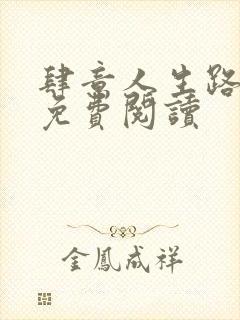 肆意人生路
免費閱讀
金鳳成祥